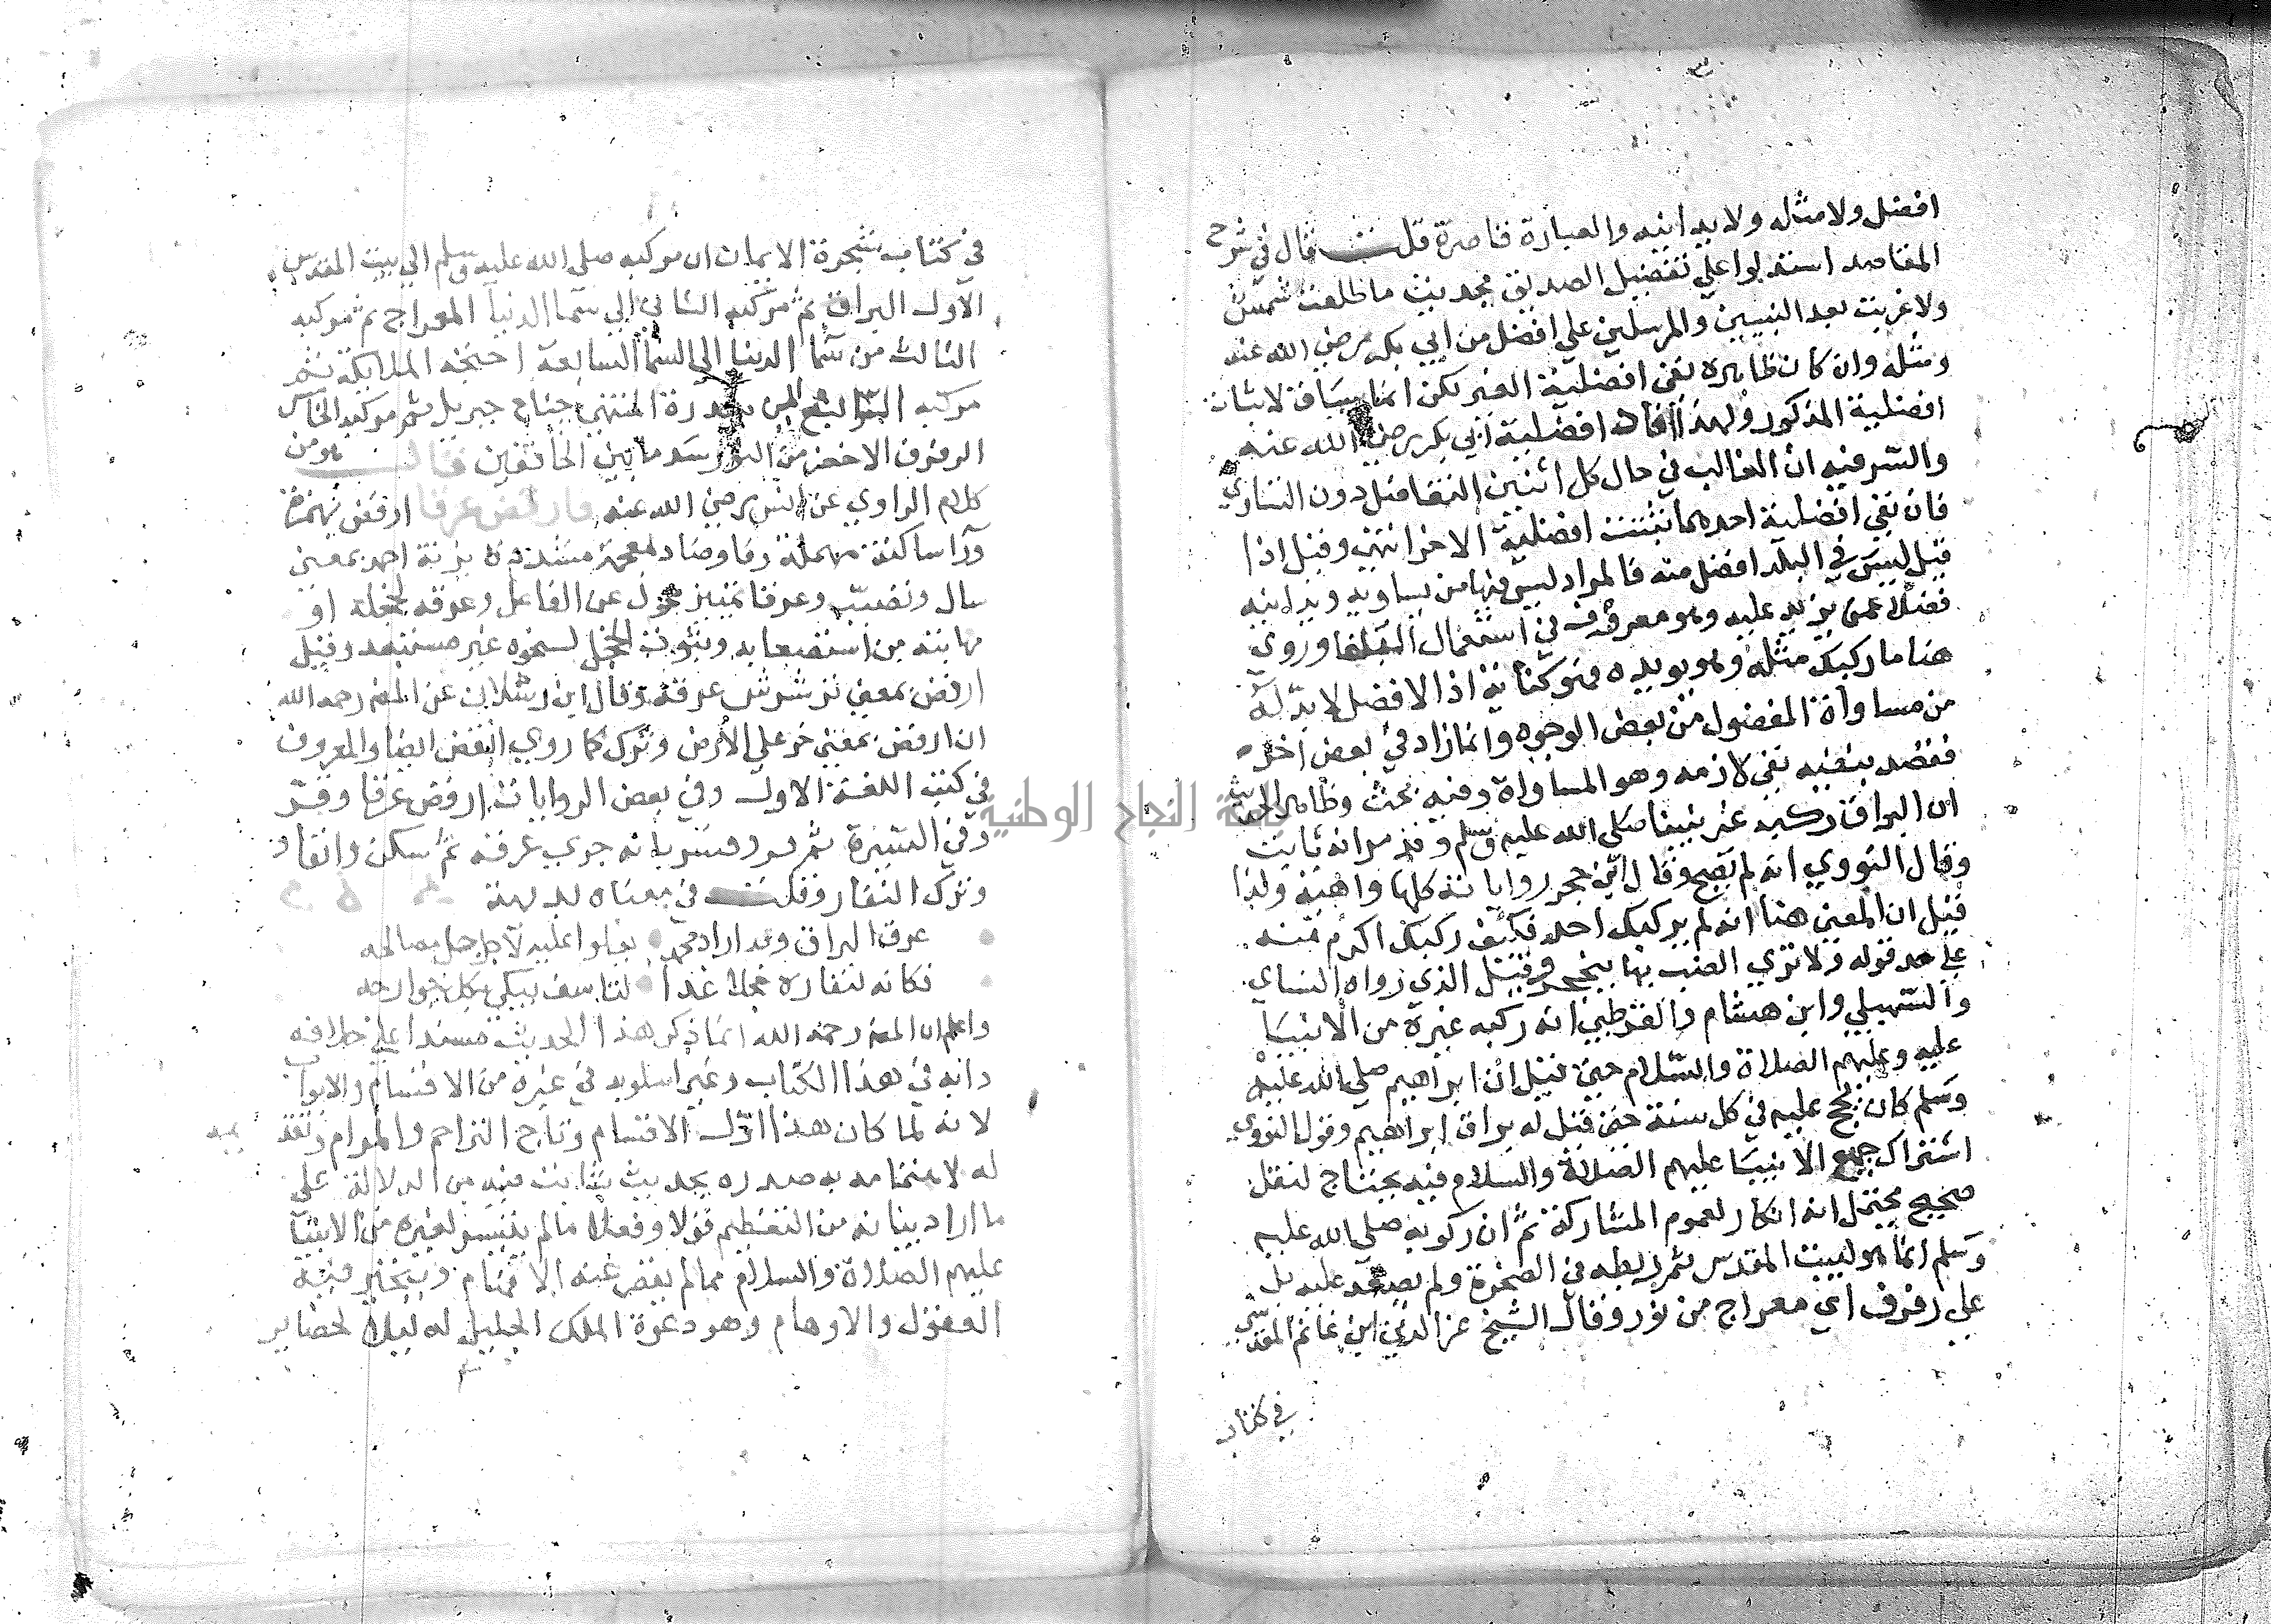 افضل ولا مثله ولا يدانيه والعبارة قاصرة قلت قال في شرح
المقاصد استدلوا على تفضيل الصديق بحديث ما طلعت شمس
ولا غربت بعد النبيين والمرسلين على افضل من ابي بكر رضي الله عنه
ومثله وان كان ظاهره نفي افضلية الغير لكن انما يساق لاثبات
افضلية المذكور ولهذا افاد افضلية ابي بكر رضي الله عنه
والسر فيه ان الغالب في حال كل اثنين التفاضل دون التساوي
فان نفي افضلية احدهما تثبت افضلية الاخر انتهى وقيل اذا
قيل ليس في البلد افضل منه فالمراد ليس فيها من يساويه ويدانيه
فضلا عمن يزيد عليه وهو معروف في استعمال البلغا وروي
هنا ما ركبك مثله وهو يويده فهو كناية اذ الافضل لا بد له
من مساواة المفضول من بعض الوجوه وانما زاد في بعض اخر
فقصد بنفيه نفي لازمه وهو المساواة وفيه بحث وظاهر الحديث
ان البراق ركبه غير نبينا صلى الله عليه وسلم وقد مر انه ثابت
وقال النووي انه لم يصح وقال ابن حجر رواياته كلها واهنة ولذا
قيل ان المعنى هنا انه لم يركبك احد فكيف ركبك اكرم منه
على حد قوله ولا ترى الضب بها ينجحر وقيل الذي رواه النساي
والسهيلي وابن هشام والقرطبي انه ركبه غيره من الانبيا
عليه وعليهم الصلاة والسلام حتى قيل ان ابراهيم صلى الله عليه
وسلم كان يحج عليه في كل سنة حتى قيل له براق ابراهيم وقول النووي
اشتراك جميع الانبيا عليهم الصلاة والسلام فيه يحتاج لنقل
صحيح يحتمل انه انكار لعموم المشاركة ثم ان ركوبه صلى الله عليه
وسلم انما هو لبيت المقدس ثم ربطه في الصخرة ولم يصعد عليه بل
على رفرف اي معراج من نور وقال الشيخ عز الدين ابن غانم المقدسي
في كتاب
في كتاب شجرة الايمان ان مركبه صلى الله عليه وسلم الي بيت المقدس
الاول البراق ثم مركبه الثاني الي سما الدنيا المعراج ثم مركبه
الثالث من سما الدنيا الى السما السابعة اجنحة الملايكة ثم
مركبه الرابع الى سدرة المنتهى جناح جبريل ثم مركبه الخامس
الرفرف الاخضر من النور سد ما بين الخافقين قال هو من
كلام الراوي عن انس رضي الله عنه فارفض عرقا ارفض بهمزة
ورا ساكنة مهملة وفا وضاد معجمة مشددة بزنة احمر بمعنى
سال وتصبب وعرقا تمييز محول عن الفاعل وعرقه لخجله او
مهابته من استصعابه وثبوت الخجل لنحوه غير مستبعد وقيل
ارفض بمعنى ترشرش عرقه وقال ابن رسلان عن المص رحمه الله
ان ارفض بمعنى خر على الارض وبرك كما روي انقض ايضا والمعروف
في كتب اللغة الاول وفي بعض الروايات ارفض عرقا وقر
وفي السيرة ثم قر وفسر بانه جرى عرقه ثم سكن وانقاد
وترك النفار وقلت في معناه بديهة
عرق البراق وقد اراد محمد يعلوا عليه لاجل جل مصالحه
فكانه لنفاره خجلا غدا لتاسف يبكي بكل جوارحه
واعلم ان المص رحمه الله انما ذكر هذا الحديث مسندا على خلاف
دابه في هذا الكتاب وغير اسلوبه في غيره من الاقسام والابواب
لانه لما كان هذا اول الاقسام وتاج التراجم والمرام وتقد يمه
له لاعتنا مه به صدره بحديث ثابت فيه من الدلالة على
ما اراد بيانه من التعظيم قولا وفعلا ما لم يتيسر لغيره من الانبيا
عليهم الصلاة والسلام مما لم يفض عنه الافهام ويتحير فيه
العقول والاوهام وهو دعوة الملك الجليل له ليلا لحضاير
جامعة النجاح الوطنية